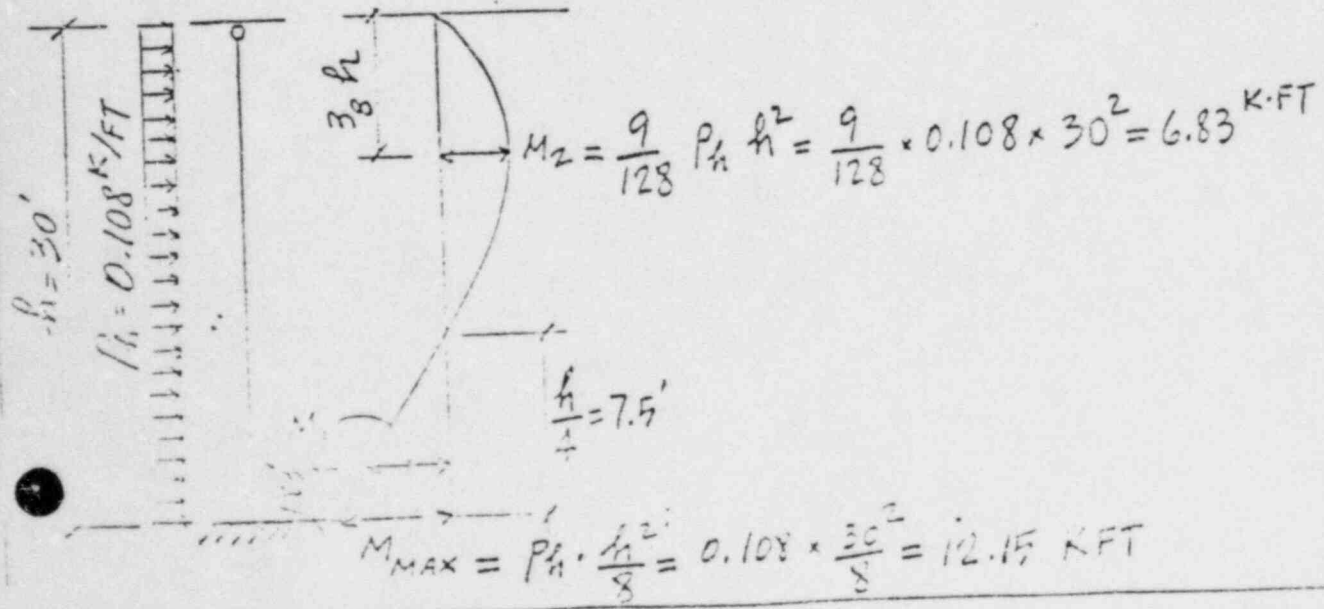 h = 30'
Ph = 0.108 K/FT
3/8 h
M2 = 9/128 Ph h² = 9/128 × 0.108 × 30² = 6.83 K·FT
h/4 = 7.5'
M MAX = Ph · h²/8 = 0.108 × 30²/8 = 12.15 KFT